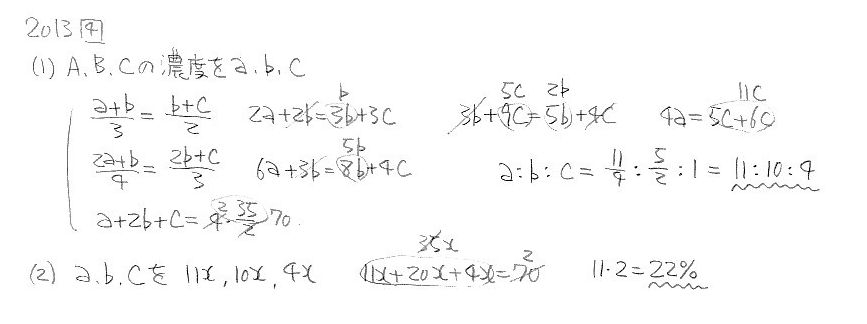 2013 4
(1) A.B.Cの濃度をa.b.c
a+b/3 = b+c/2 2a+2b=3b+3c b 3b+9c=5b+4c 5c 2b 4a=5c+6c 11c
2a+b/4 = 2b+c/3 6a+3b=8b+4c 5b a:b:c = 11/4 : 5/2 : 1 = 11:10:4
a+2b+c = 4·35/2 2 70
(2) a.b.cを 11x, 10x, 4x 11x+20x+4x=70 35x 2 11·2=22%